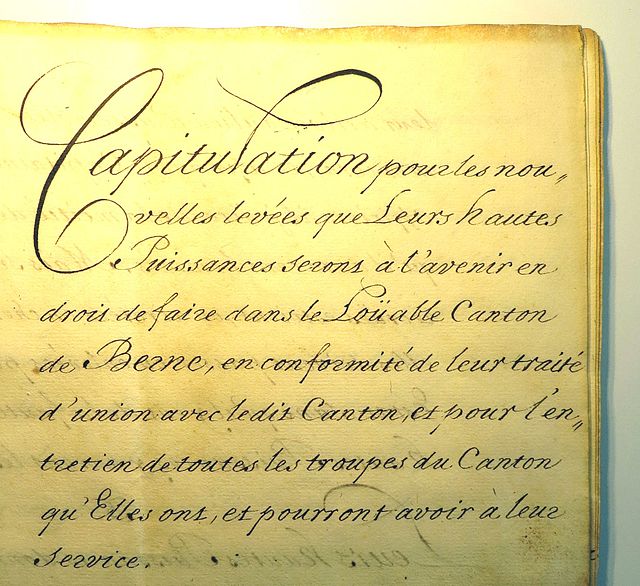 Capitulation pour les nou„
velles levées que Leurs hautes
Puissances seront à l'avenir en
droit de faire dans le Loüable Canton
de Berne, en conformité de leur traité
d'union avec ledit Canton, et pour l'en„
tretien de toutes les troupes du Canton
qu'Elles ont, et pourront avoir à leur
service.